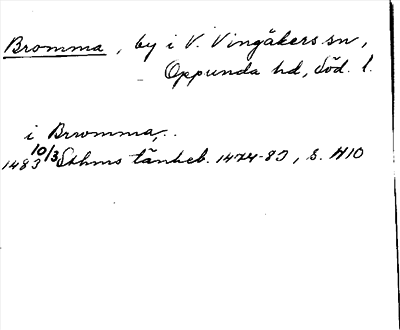 Bromma, by i V. Vingåkers sn,
Oppunda hd, Söd. l.
i Brwomma,..
1483 10/3 Sthms tänkeb. 1474-83, s. 410